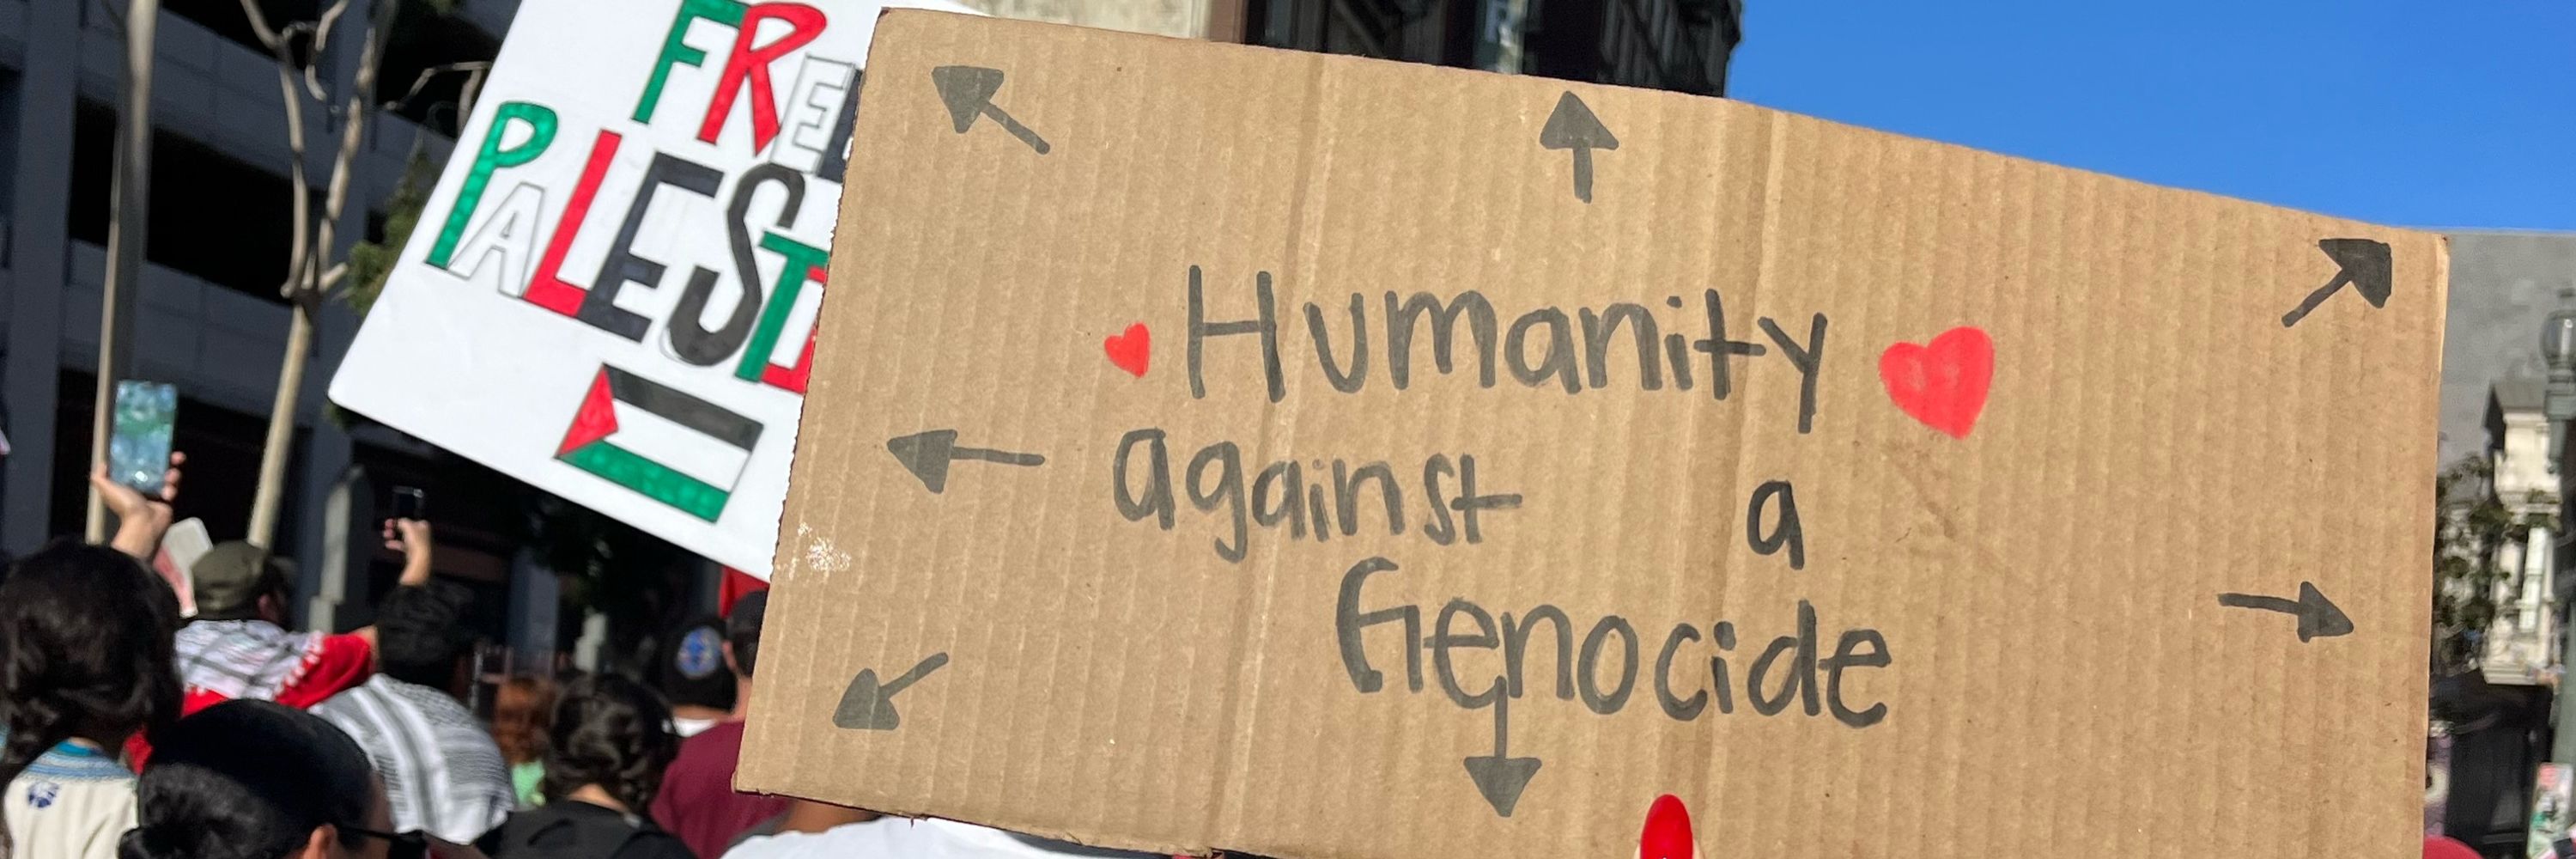 FREE
PALEST
Humanity
against a
Genocide